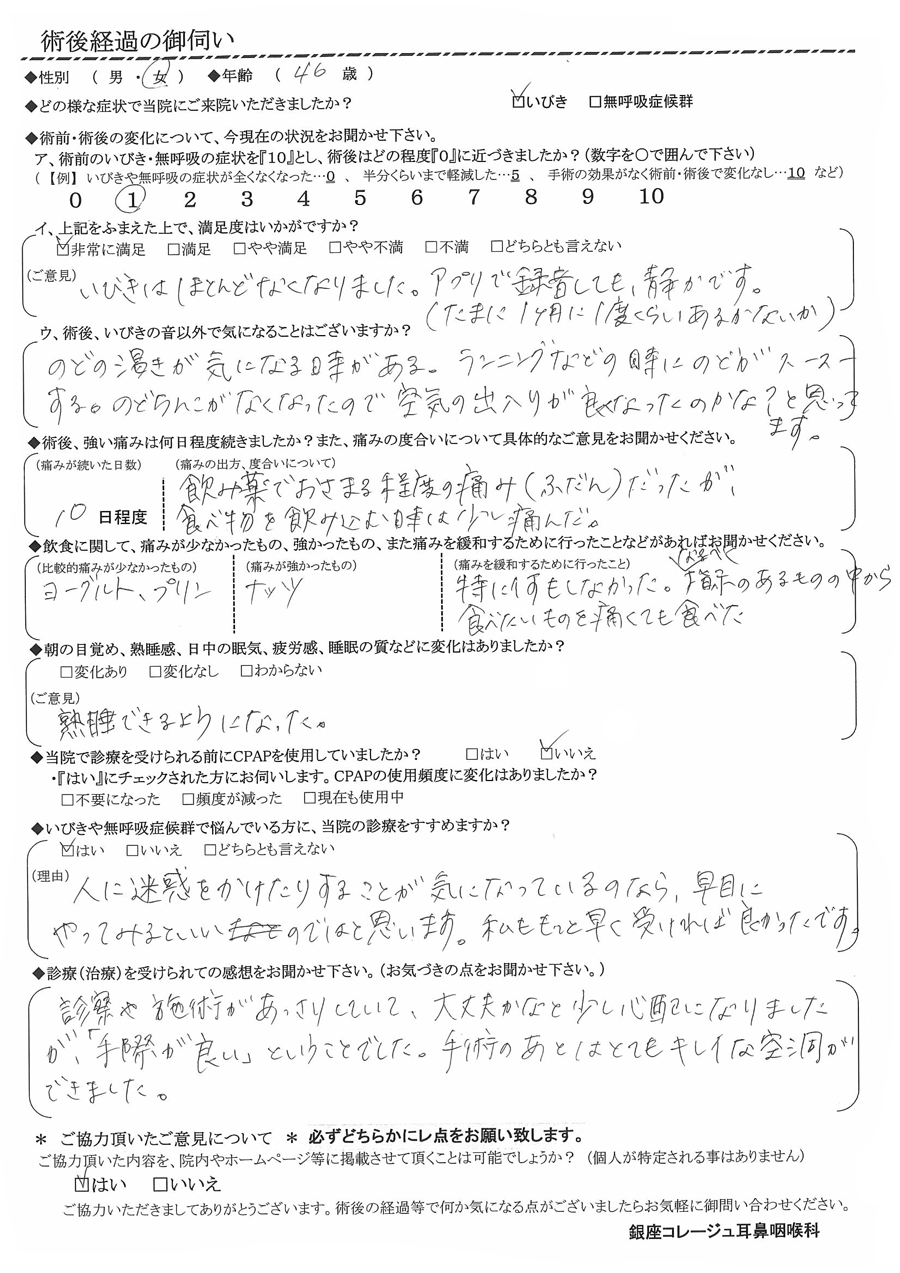 術後経過の御伺い
◆性別 （ 男 ・ 女 ） ◆年齢 （ 46 歳 ）
◆どの様な症状で当院にご来院いただきましたか？ ☑いびき □無呼吸症候群
◆術前・術後の変化について、今現在の状況をお聞かせ下さい。
ア、術前のいびき・無呼吸の症状を『10』とし、術後はどの程度『0』に近づきましたか？（数字を〇で囲んで下さい）
（ 【例】 いびきや無呼吸の症状が全くなくなった…0 、 半分くらいまで軽減した…5 、 手術の効果がなく術前・術後で変化なし…10 など）
0 1 2 3 4 5 6 7 8 9 10
イ、上記をふまえた上で、満足度はいかがですか？
☑非常に満足 □満足 □やや満足 □やや不満 □不満 □どちらとも言えない
（ご意見） いびきはほとんどなくなりました。アプリで録音しても、静かです。
（たまに1ヶ月に1度くらいあるかないか）
ウ、術後、いびきの音以外で気になることはございますか？
のどの渇きが気になる時がある。ランニングなどの時にのどがスースー
する。のどちんこがなくなったので空気の出入りが良くなったのかな？と思って
ます。
◆術後、強い痛みは何日程度続きましたか？また、痛みの度合いについて具体的なご意見をお聞かせください。
（痛みが続いた日数） （痛みの出方、度合いについて）
飲み薬でおさまる程度の痛み（ふだん）だったが、
10 日程度 食べ物を飲み込む時は少し痛んだ。
◆飲食に関して、痛みが少なかったもの、強かったもの、また痛みを緩和するために行ったことなどがあればお聞かせください。
（比較的痛みが少なかったもの） （痛みが強かったもの） （痛みを緩和するために行ったこと） なるべく
ヨーグルト、プリン ナッツ 特に何もしなかった。指示のあるものの中から
食べたいものを痛くても食べた
◆朝の目覚め、熟睡感、日中の眠気、疲労感、睡眠の質などに変化はありましたか？
□変化あり □変化なし □わからない
（ご意見）
熟睡できるようになった。
◆当院で診療を受けられる前にCPAPを使用していましたか？ □はい ☑いいえ
・『はい』にチェックされた方にお伺いします。CPAPの使用頻度に変化はありましたか？
□不要になった □頻度が減った □現在も使用中
◆いびきや無呼吸症候群で悩んでいる方に、当院の診療をすすめますか？
☑はい □いいえ □どちらとも言えない
（理由） 人に迷惑をかけたりすることが気になっているのなら、早目に
やってみるといいのではと思います。私ももっと早く受ければ良かったです。
◆診療（治療）を受けられての感想をお聞かせ下さい。（お気づきの点をお聞かせ下さい。）
診察や施術があっさりしていて、大丈夫かなと少し心配になりました
が、「手際が良い」ということでした。手術のあとはとてもキレイな空洞が
できました。
＊ ご協力頂いたご意見について ＊ 必ずどちらかにレ点をお願い致します。
ご協力頂いた内容を、院内やホームページ等に掲載させて頂くことは可能でしょうか？ （個人が特定される事はありません）
☑はい □いいえ
ご協力いただきましてありがとうございます。術後の経過等で何か気になる点がございましたらお気軽に御問い合わせください。
銀座コレージュ耳鼻咽喉科